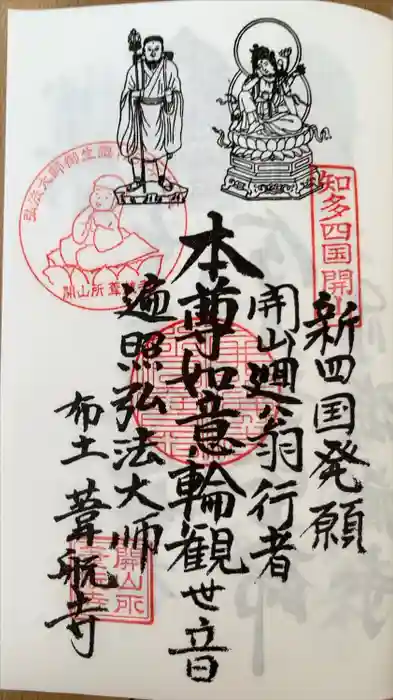 新四国発願
開山廻翁行者
本尊如意輪観世音
遍照弘法大師
布土 葦航寺
知多四国開山
弘法大師御生誕
開山所葦航寺
開山所